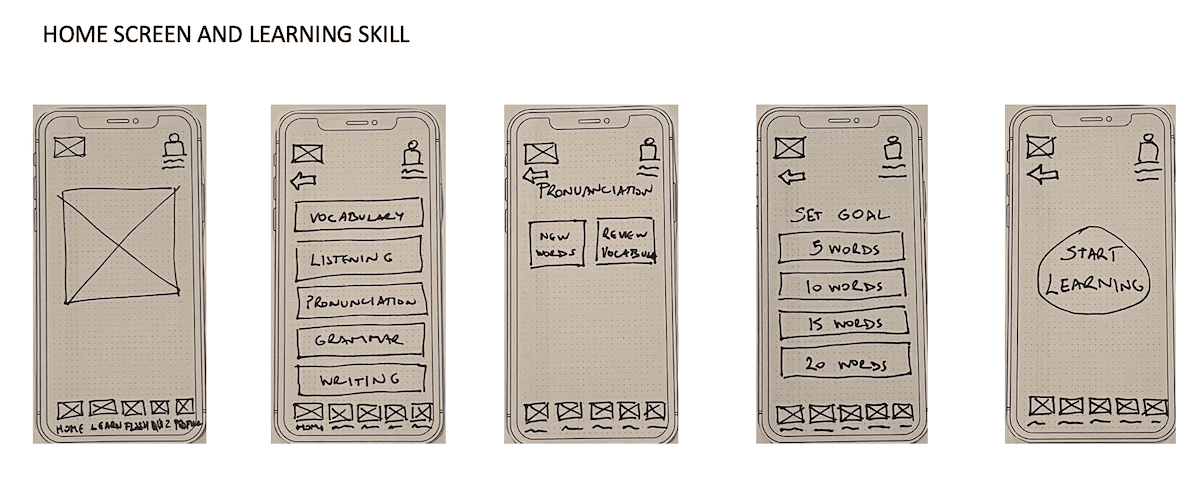 HOME SCREEN AND LEARNING SKILL
HOME LEARN FLASH QUIZ
VOCABULARY
LISTENING
PRONUNCIATION
GRAMMAR
WRITING
HOME
PRONUANCIATION
NEW
WORDS
REVIEW
VOCABULA
SET GOAL
5 WORDS
10 WORDS
15 WORDS
20 WORDS
START
LEARNING